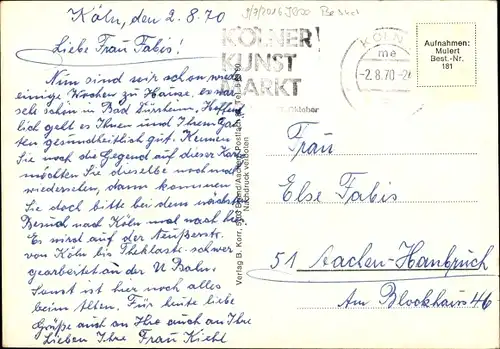 Köln, den 2.8.70
Liebe Frau Fabis!
Nun sind wir schon wieder
einige Wochen zu Hause. Es war
sehr schön in Bad Dürrheim. Hoffent
lich geht es Ihnen und Ihrem Gat
ten gesundheitlich gut. Kennen
Sie noch die Gegend auf dieser Karte
möchten Sie dieselbe noch mal
wiedersehen, dann kommen
Sie doch bitte bei dem nächsten
Besuch nach Köln mal nach hier
Es wird auf der Neußerstr.
von Köln bis Theklastr. schwer
gearbeitet an der U Bahn.
Sonst ist hier noch alles
beim Alten. Für heute liebe
Grüße auch an Ihre auch an Ihre
Lieben Ihre Frau Kiehl
KÖLNER
KUNST
MARKT
KÖLN
me
-2.8.70-2
Aufnahmen:
Mulert
Best.-Nr.
181
Verlag B. Korr,
Nachdruck verboten
Frau
Else Fabis
51 Aachen-Hanbruch
Am Blockhaus 46